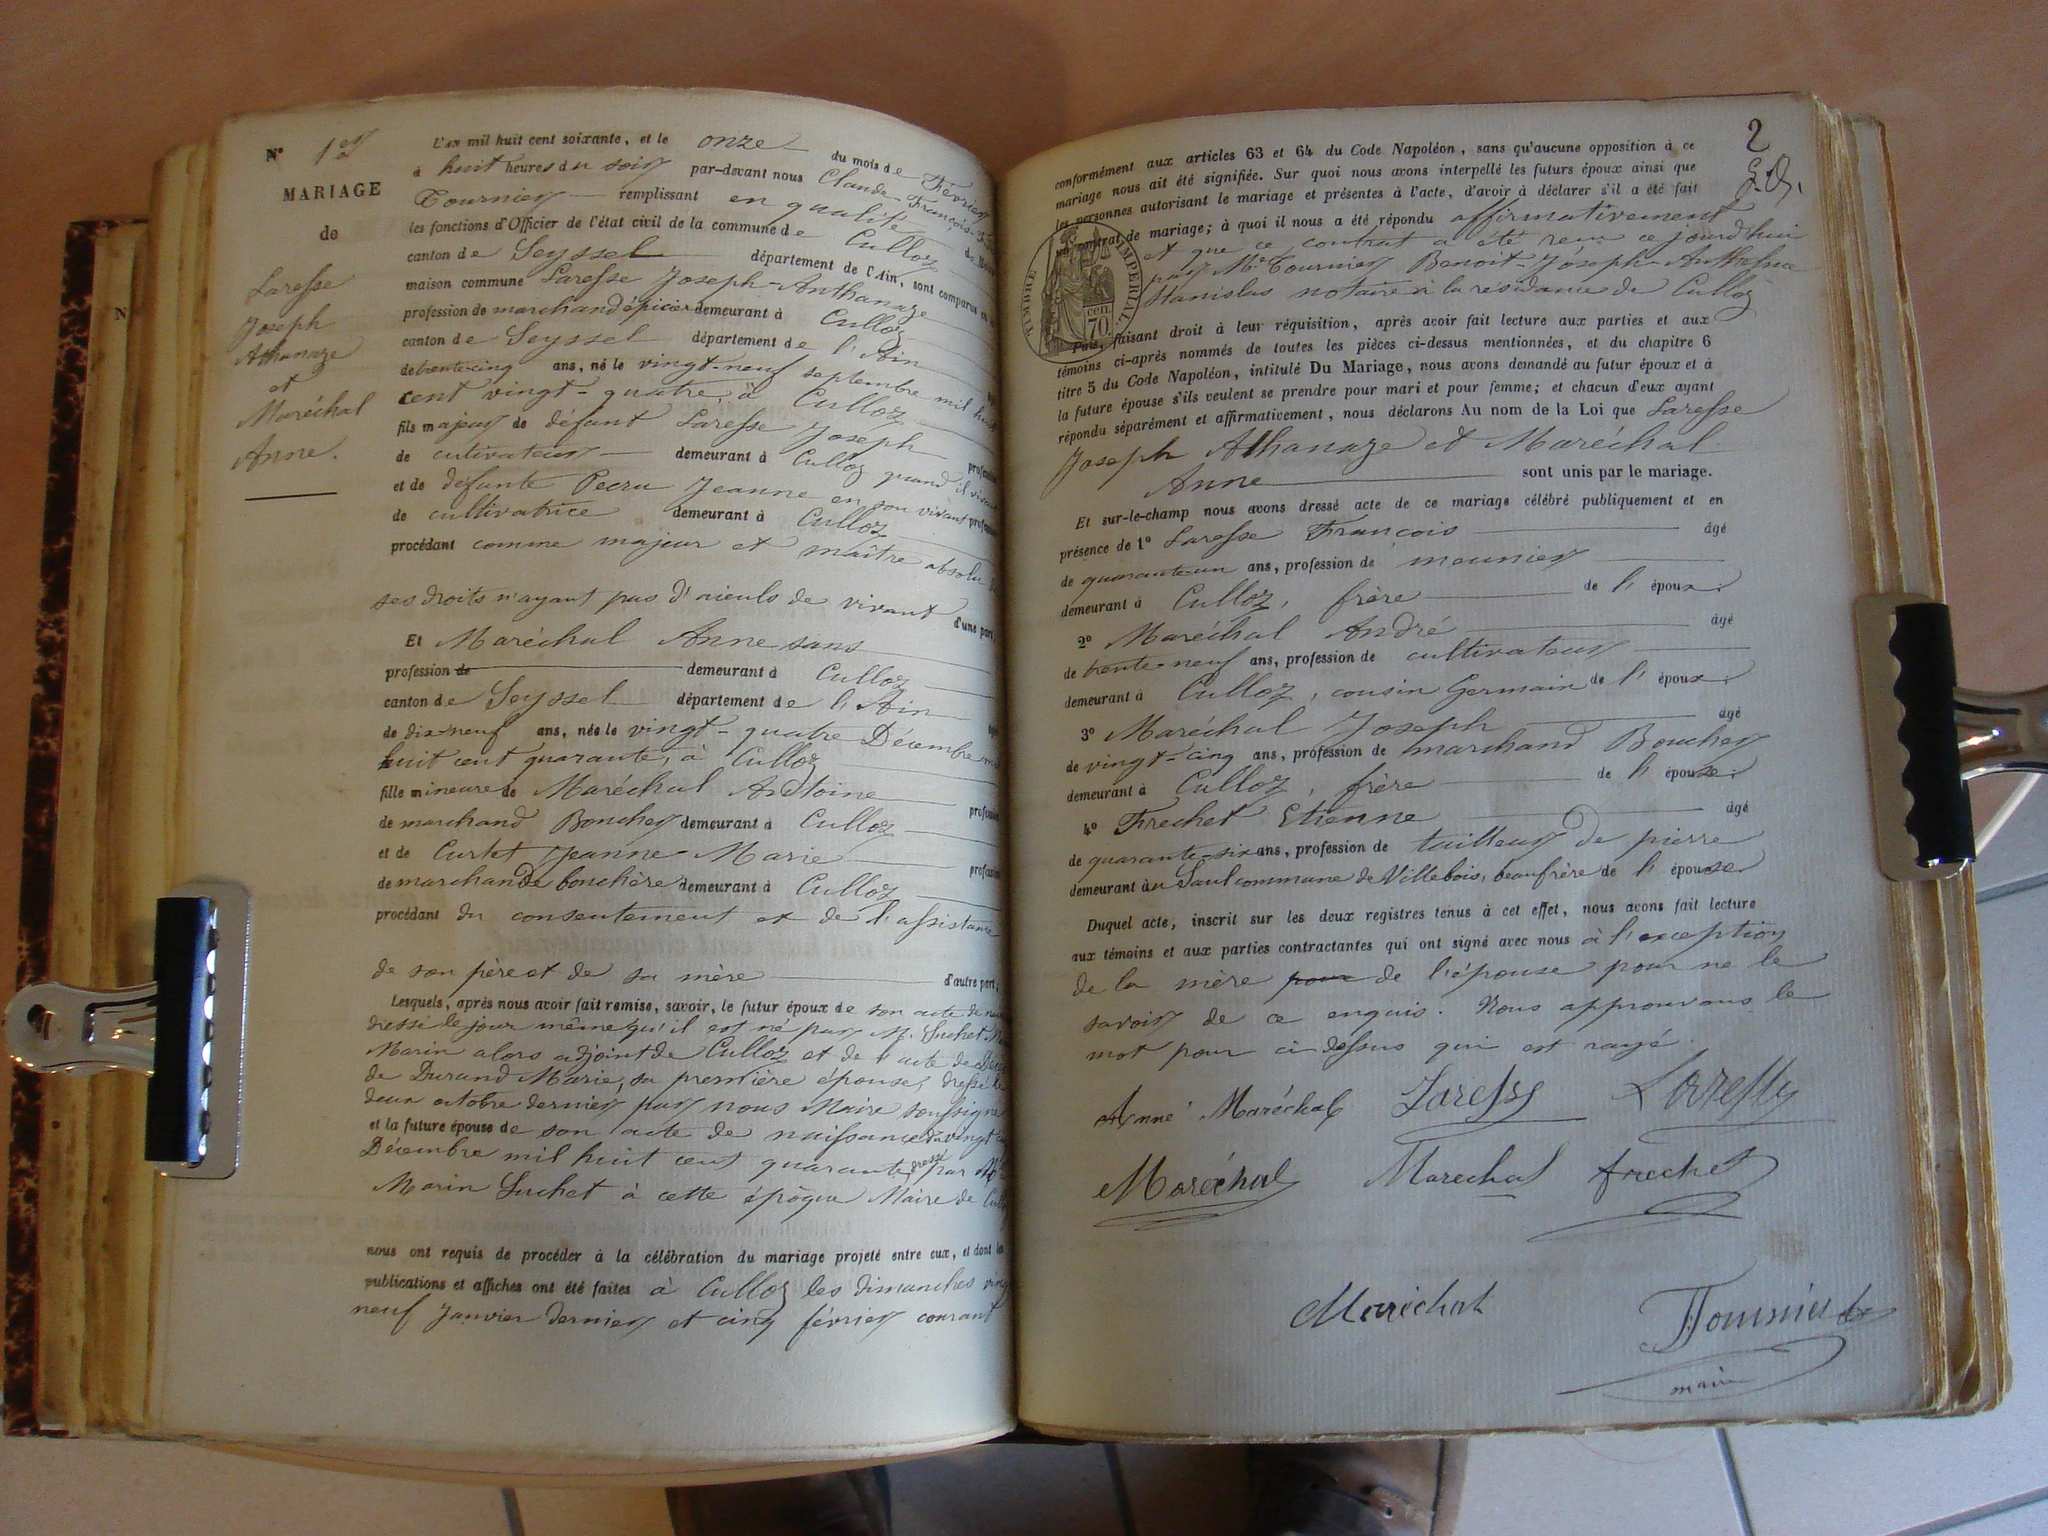 N° 1er
MARIAGE
de
Laresse
Joseph
Athanaze
et
Maréchal
Anne.
L'an mil huit cent soixante, et le onze du mois de Février
à huit heures du soir par-devant nous Claude-François
Tournier remplissant en qualité de
les fonctions d'Officier de l'état civil de la commune de Culloz
canton de Seyssel département de l'Ain, sont comparus en
maison commune Laresse Joseph-Anthanaze
profession de marchand épicier demeurant à Culloz
canton de Seyssel département de l'Ain
de trente-cinq ans, né le vingt-neuf septembre mil huit
cent vingt-quatre, à Culloz
fils majeur de défunt Laresse Joseph
de cultivateur demeurant à Culloz quand il vivait
et de défunte Pecru Jeanne en son vivant profession
de cultivatrice demeurant à Culloz
procédant comme majeur et maître absolu de
ses droits n'ayant pas d'aieuls de vivant d'une part,
Et Maréchal Anne sans
profession de demeurant à Culloz
canton de Seyssel département de l'Ain
de dix-neuf ans, née le vingt-quatre Décembre mil
huit cent quarante, à Culloz
fille mineure de Maréchal Antoine profession
de marchand Boucher demeurant à Culloz
et de Curtet Jeanne-Marie profession
de marchande bouchère demeurant à Culloz
procédant du consentement et de l'assistance
de son père et de sa mère d'autre part;
Lesquels, après nous avoir fait remise, savoir, le futur époux de son acte de
dressé le jour même qu'il est né par M. Suchet
Marin alors adjoint de Culloz et de l'acte de
de Durand Marie, sa première épouse, dressé le
deux octobre dernier par nous Maire soussigné
et la future épouse de son acte de naissance du vingt
Décembre mil huit cent quarante, dressé par Mr
Marin Suchet à cette époque Maire de Culloz
nous ont requis de procéder à la célébration du mariage projeté entre eux, et dont les
publications et affiches ont été faites à Culloz les dimanches vingt
neuf Janvier dernier et cinq février courant
2
conformément aux articles 63 et 64 du Code Napoléon, sans qu'aucune opposition à ce
mariage nous ait été signifiée. Sur quoi nous avons interpellé les futurs époux ainsi que
les personnes autorisant le mariage et présentes à l'acte, d'avoir à déclarer s'il a été fait
un contrat de mariage; à quoi il nous a été répondu affirmativement
et que ce contrat a été reçu ce jourd'hui
par Me Tournier Benoit-Joseph-Anthelme
Stanislas notaire à la résidance de Culloz
TIMBRE IMPERIAL
70 CEN.
Puis, faisant droit à leur réquisition, après avoir fait lecture aux parties et aux
témoins ci-après nommés de toutes les pièces ci-dessus mentionnées, et du chapitre 6
titre 5 du Code Napoléon, intitulé Du Mariage, nous avons demandé au futur époux et à
la future épouse s'ils veulent se prendre pour mari et pour femme; et chacun d'eux ayant
répondu séparément et affirmativement, nous déclarons Au nom de la Loi que Laresse
Joseph Athanaze et Maréchal
Anne sont unis par le mariage.
Et sur-le-champ nous avons dressé acte de ce mariage célébré publiquement et en
présence de 1° Laresse François âgé
de quarante-un ans, profession de meunier
demeurant à Culloz, frère de l'époux.
2° Maréchal André âgé
de trente-neuf ans, profession de cultivateur
demeurant à Culloz, cousin Germain de l'époux.
3° Maréchal Joseph âgé
de vingt-cinq ans, profession de marchand Boucher
demeurant à Culloz, frère de l'épouse.
4° Frechet Etienne âgé
de quarante-six ans, profession de tailleur de pierre
demeurant au Saul commune de Villebois, beaufrère de l'épouse.
Duquel acte, inscrit sur les deux registres tenus à cet effet, nous avons fait lecture
aux témoins et aux parties contractantes qui ont signé avec nous à l'exception
de la mère pour de l'épouse pour ne le
savoir de ce enquis. Nous approuvons le
mot pour ci-dessus qui est rayé.
Anne Maréchal Laresse Laresse
Maréchal Marechal frechet
Maréchal Tournier
maire